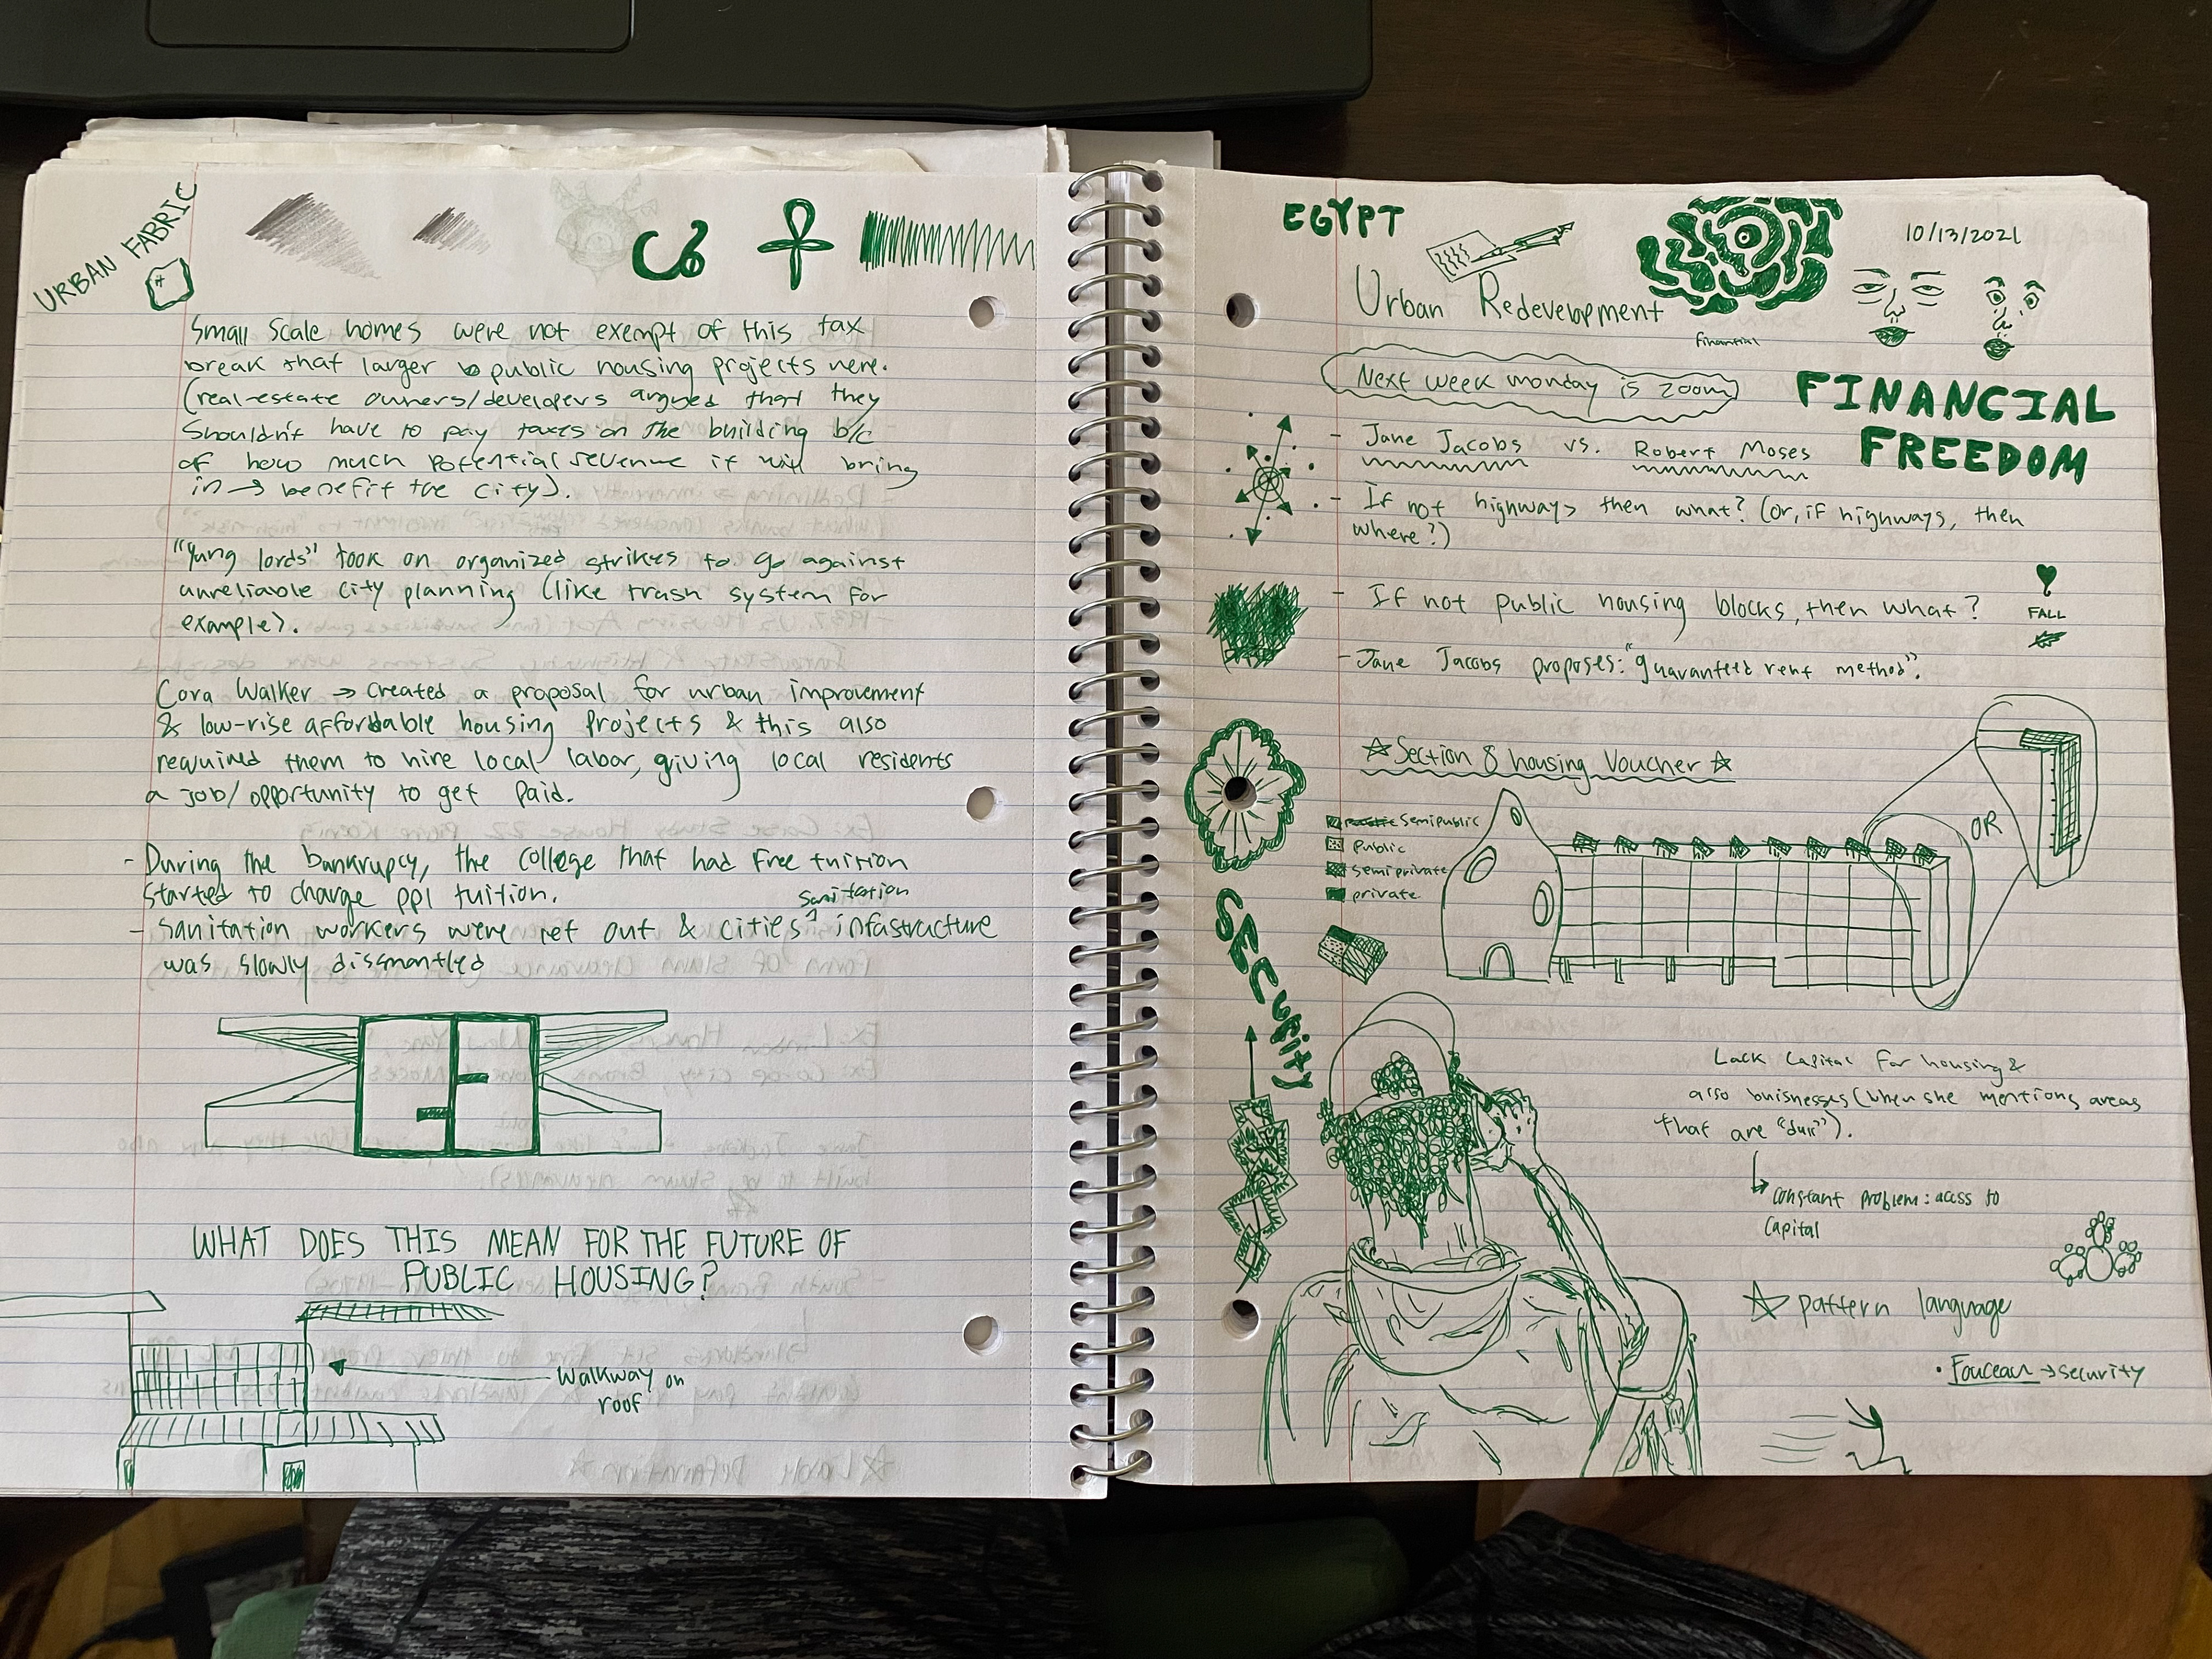 URBAN FABRIC
Small scale homes were not exempt of this tax
break that larger public housing projects were.
(real-estate owners/developers argued that they
shouldn't have to pay taxes on the building b/c
of how much potential revenue it will bring
in → benefit the city).
"Yung lords" took on organized strikes to go against
unreliable city planning (like trash system for
example).
Cora Walker → created a proposal for urban improvement
& low-rise affordable housing projects & this also
required them to hire local labor, giving local residents
a job/opportunity to get paid.
- During the bankrupcy, the college that had free tuition
started to charge ppl tuition.
sanitation
- Sanitation workers were let out & cities ^ infastructure
was slowly dissmantled
WHAT DOES THIS MEAN FOR THE FUTURE OF
PUBLIC HOUSING?
Walkway on
roof
EGYPT
10/13/2021
Urban Redevelopment
financial
Next week monday is zoom
FINANCIAL
FREEDOM
- Jane Jacobs vs. Robert Moses
- If not highways then what? (or, if highways, then
where?)
- If not public housing blocks, then what?
FALL
- Jane Jacobs proposes: "guaranteed rent method".
☆ Section 8 housing Voucher ☆
semipublic
public
semiprivate
private
OR
SECURITY
Lack capital for housing &
also buisnesses (when she mentions areas
that are "dull").
↳ constant problem: access to
capital
☆ pattern language
• Fouceau → security